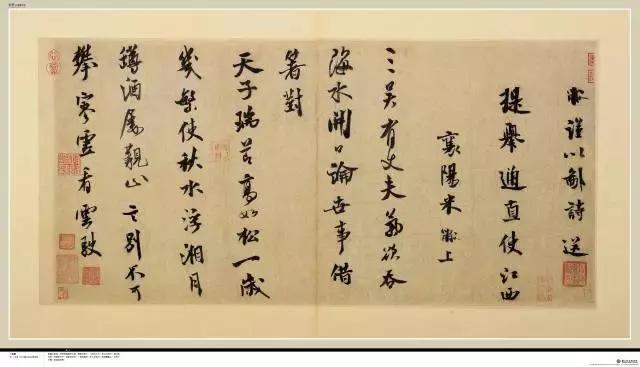 黻謹以鄙詩送
提舉通直使江西
襄陽米黻上
三吳有丈夫氣欲吞
海水開口論世事借
箸對
天子瑞高如松一歲
幾繁使秋水浮湘月
罇酒屢觀山言別不可
攀雲看雲駛